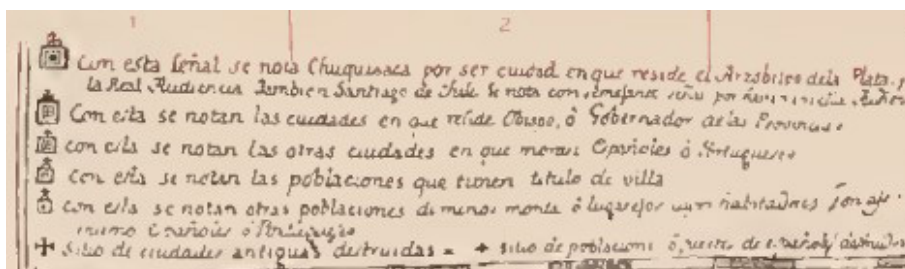 1 2
Con esta señal se nota Chuquisaca por ser ciudad en que reside el Arzobispo dela Plata.
la Real Audiencia tambien Santiago de Chile se nota con semejante señal por
Con esta se notan las ciudades en que reside Obispo, ò Gobernador de las Provincias.
con esta se notan las otras ciudades en que moran Españoles ò Portugueses
con esta se notan las poblaciones que tienen titulo de villa
con esta se notan otras poblaciones de menos monta ò lugarejos cuyos habitadores son assi
mismo Españoles ò Portugueses
Sitio de ciudades antiguas destruidas = sitio de poblaciones de españoles destruidas